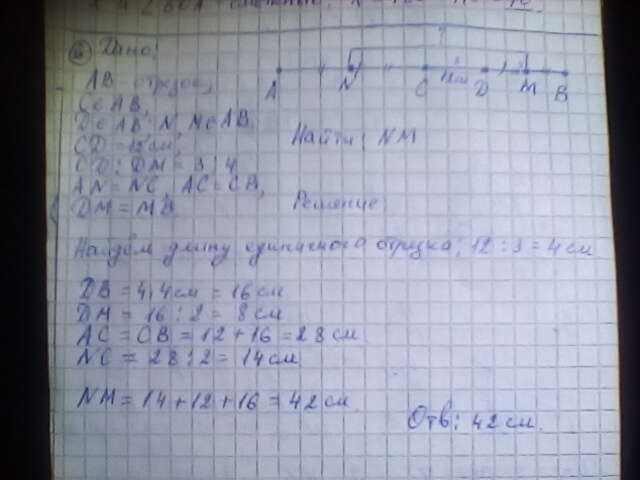 6 Дано:
AB - отрезок,
C ∈ AB,
D ∈ AB, N, M ∈ AB
CD = 12 см,
CD : DM = 3 : 4
AN = NC, AC = CB,
DM = MB
?
A N C 12см D M B
Найти: NM
Решение:
Найдём длину единичного отрезка: 12 : 3 = 4 см
DB = 4 · 4 см = 16 см
DM = 16 : 2 = 8 см
AC = CB = 12 + 16 = 28 см
NC = 28 : 2 = 14 см
NM = 14 + 12 + 16 = 42 см
Отв: 42 см.